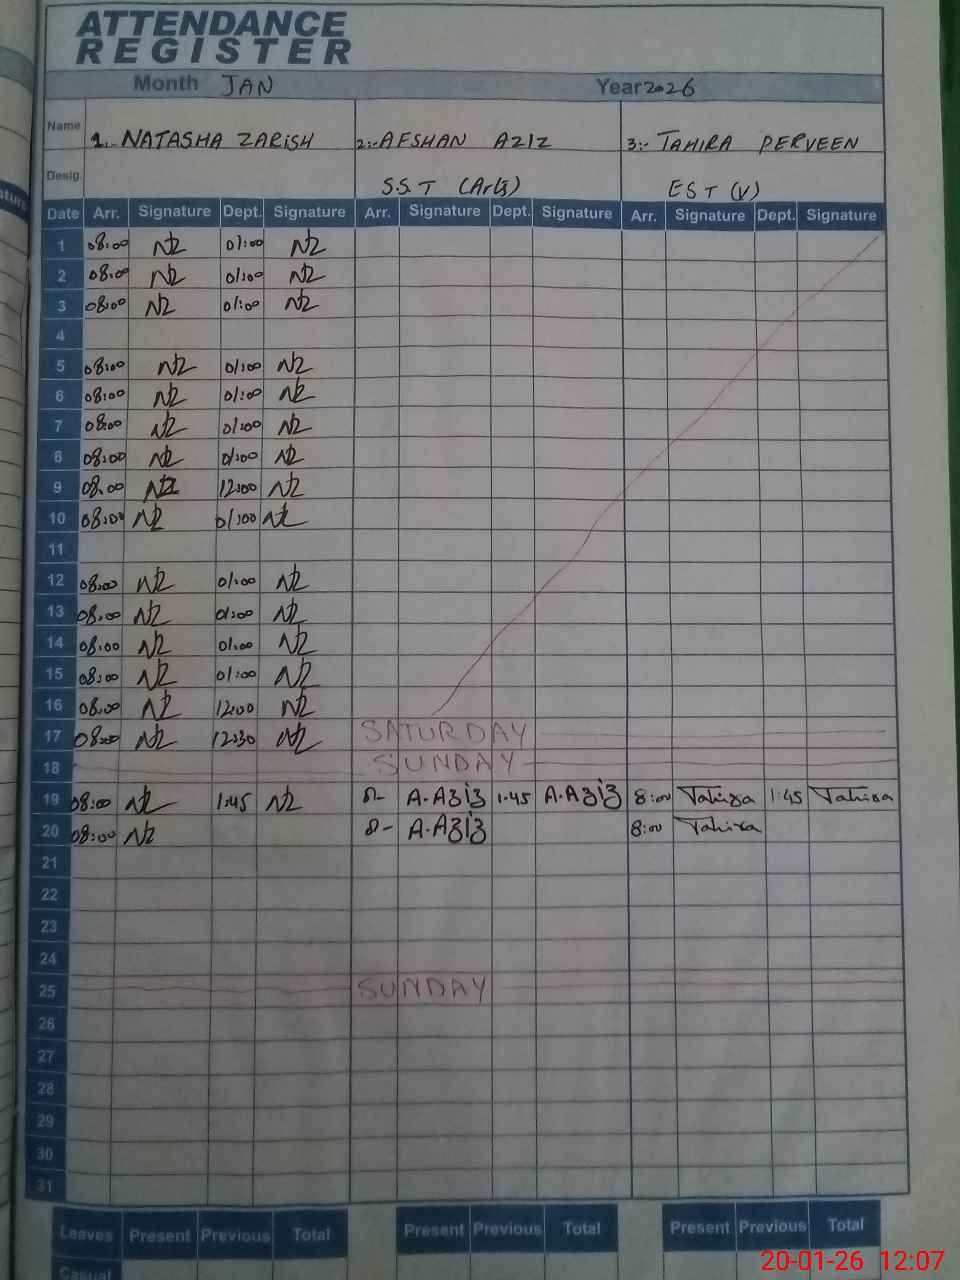 ATTENDANCE
REGISTER
Month JAN Year 2026
Name 1.- NATASHA ZARISH 2:- AFSHAN AZIZ 3:- TAHIRA PERVEEN
Desig. S.S.T (Arts) EST (V)
Date Arr. Signature Dept. Signature Arr. Signature Dept. Signature Arr. Signature Dept. Signature
1 08:00 NZ 01:00 NZ
2 08:00 NZ 01:00 NZ
3 08:00 NZ 01:00 NZ
4
5 08:00 NZ 01:00 NZ
6 08:00 NZ 01:00 NZ
7 08:00 NZ 01:00 NZ
8 08:00 NZ 01:00 NZ
9 08:00 NZ 12:00 NZ
10 08:00 NZ 01:00 NZ
11
12 08:00 NZ 01:00 NZ
13 08:00 NZ 01:00 NZ
14 08:00 NZ 01:00 NZ
15 08:00 NZ 01:00 NZ
16 08:00 NZ 12:00 NZ
17 08:00 NZ 12:30 NZ SATURDAY
18 SUNDAY
19 08:00 NZ 1:45 NZ 8- A.Aziz 1:45 A.Aziz 8:00 Tahira 1:45 Tahira
20 08:00 NZ 8- A.Aziz 8:00 Tahira
21
22
23
24
25 SUNDAY
26
27
28
29
30
31
Leaves Present Previous Total Present Previous Total Present Previous Total
Casual
20-01-26 12:07